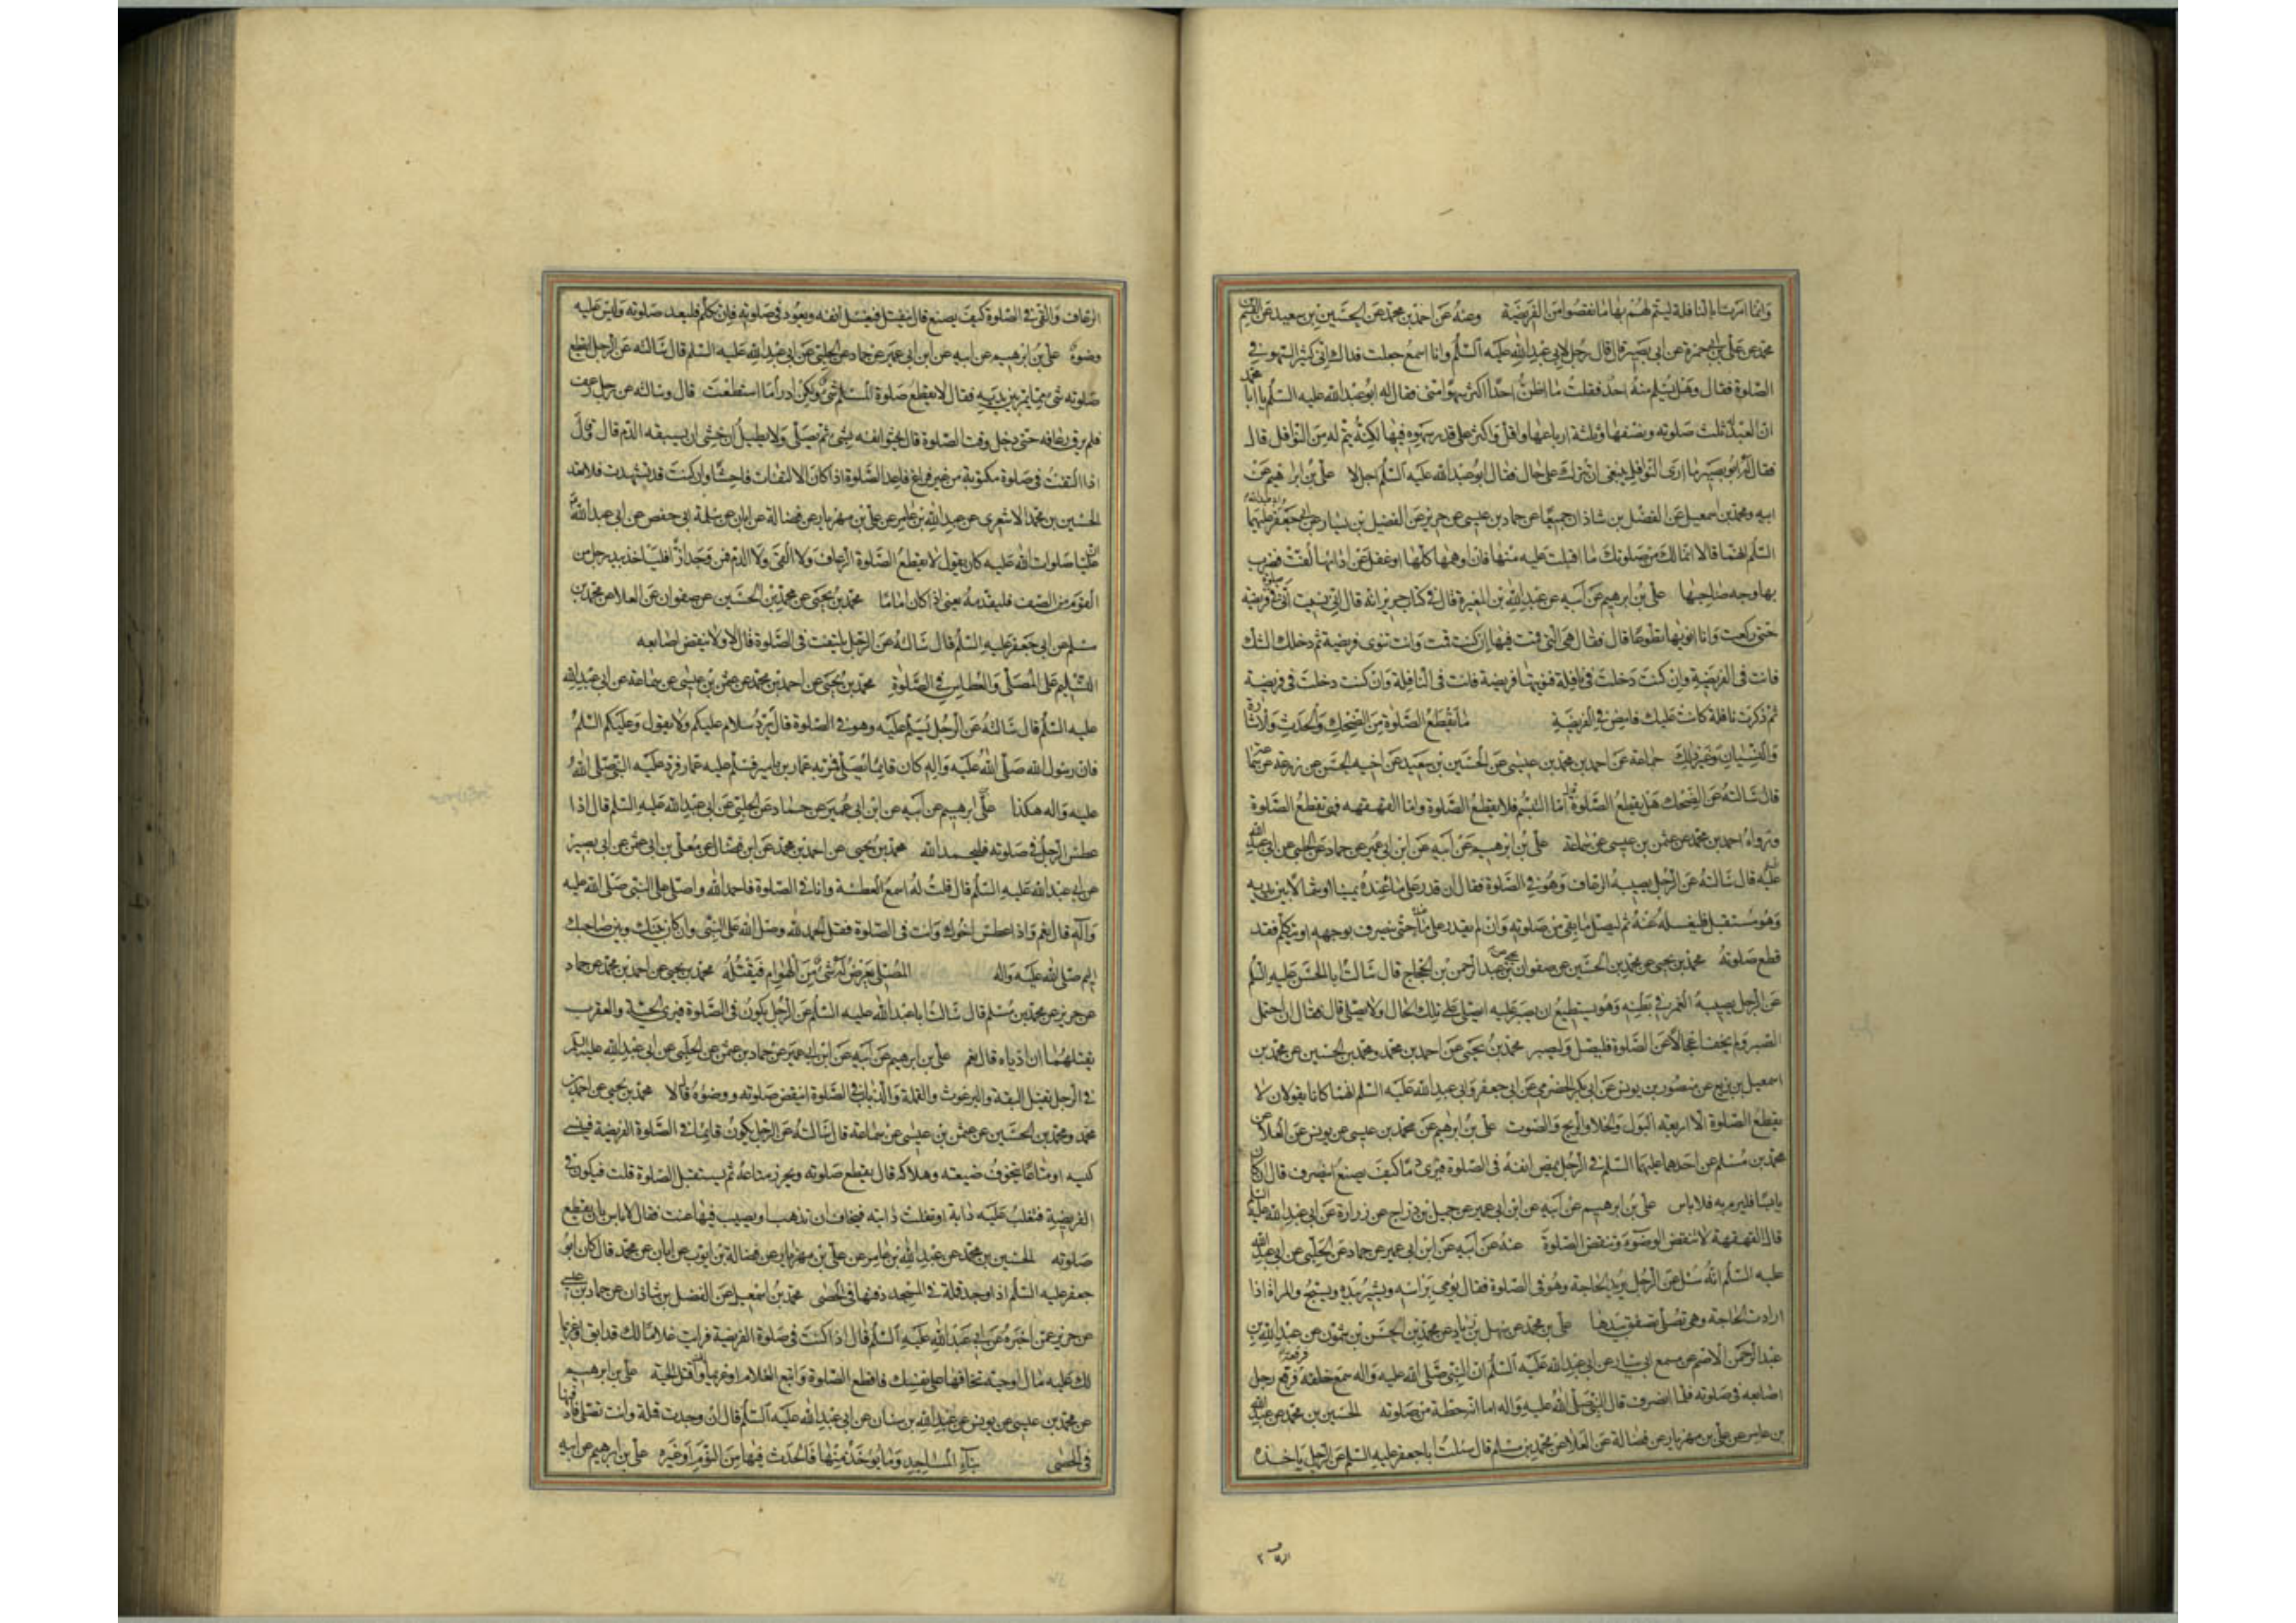 وانما امرنا بالنافلة ليتم لهم بها ما نقصوا من الفريضة وعنه عن احمد بن محمد عن الحسين بن سعيد عن القسم بن
محمد عن علي بن ابي حمزة عن ابي بصير قال قال رجل لابي عبد الله عليه السلم وانا اسمع جعلت فداك اني كثير السهو في
الصلوة فقال وهل يسلم منه احد فقلت ما اظن احدا اكثر سهوا مني فقال له ابو عبد الله عليه السلم يا ابا محمد
ان العبد ثلث صلوته ونصفها وثلثة ارباعها واقل واكثر على قدر سهوه فيها لكنه يتم له من النوافل قال
فقال له ابو بصير ما ارى النوافل ينبغي ان تترك على حال فقال ابو عبد الله عليه السلم اجل لا علي بن ابراهيم عن
ابيه ومحمد بن اسمعيل عن الفضل بن شاذان جميعا عن حماد بن عيسى عن حريز عن الفضيل بن يسار عن ابي جعفر وابي عبد الله عليهما
السلم انهما قالا انما لك من صلوتك ما اقبلت عليه منها فان اوهمها كلها او غفل عن ادائها لفت فضرب
بها وجه صاحبها علي بن ابرهيم عن ابيه عن عبد الله بن المغيرة قال في كتاب حريز انه قال اني نسيت اني في صلوة فريضة
حتى ركعت وانا انويها تطوعا قال فقال هي التي قمت فيها ان كنت قمت وانت تنوي فريضة ثم دخلك الشك
فانت في الفريضة وان كنت دخلت في نافلة فنويتها فريضة فانت في النافلة وان كنت دخلت في فريضة
ثم ذكرت نافلة كانت عليك فامض في الفريضة ما يقطع الصلوة من الضحك والحدث والاشارة
والنسيان وغير ذلك جماعة عن احمد بن محمد بن عيسى عن الحسين بن سعيد عن اخيه الحسن عن زرعة عن سماعة
قال سالته عن الضحك هل يقطع الصلوة قال اما التبسم فلا يقطع الصلوة واما القهقهه فهي تقطع الصلوة
ورواه احمد بن محمد عن عثمن بن عيسى عن سماعة علي بن ابرهيم عن ابيه عن ابن ابي عمير عن حماد عن الحلبي عن ابي عبد الله
عليه قال سالته عن الرجل يصيبه الرعاف وهو في الصلوة فقال ان قدر على ما عنده يمينا او شمالا بين يديه
وهو مستقبل فليغسله عنه ثم ليصل ما بقي من صلوته وان لم يقدر على ماء حتى ينصرف بوجهه او يتكلم فقد
قطع صلوته محمد بن يحيى عن محمد بن الحسين عن صفوان بن يحيى عن عبد الرحمن بن الحجاج قال سالت ابا الحسن عليه السلم
عن الرجل يصيبه الغمز في بطنه وهو يستطيع ان يصبر عليه ايصلي على تلك الحال او لا يصلي قال فقال ان احتمل
الصبر ولم يخف اعجالا عن الصلوة فليصل وليصبر محمد بن يحيى عن احمد بن محمد ومحمد بن الحسين عن محمد بن
اسمعيل بن بزيع عن منصور بن يونس عن ابي بكر الحضرمي عن ابي جعفر وابي عبد الله عليه السلم انهما كانا يقولان لا
يقطع الصلوة الا اربعة البول والخلا والريح والصوت علي بن ابرهيم عن محمد بن عيسى عن يونس عن العلا عن
محمد بن مسلم عن احدهما عليهما السلم في الرجل يمض انفه في الصلوة فيرى دما كيف يصنع اينصرف قال ان كان
يابسا فليرم به فلا باس علي بن ابرهيم عن ابيه عن ابن ابي عمير عن جميل بن دراج عن زرارة عن ابي عبد الله عليه السلم
قال القهقهة لا تنقض الوضوء وتنقض الصلوة عنه عن ابيه عن ابن ابي عمير عن حماد عن الحلبي عن ابي عبد الله
عليه السلم انه سئل عن الرجل يريد الحاجة وهو في الصلوة فقال يومي براسه ويشير بيده ويسبح والمراة اذا
ارادت الحاجة وهي تصلي تصفق بيدها علي بن محمد عن سهل بن زياد عن محمد بن الحسن بن شمون عن عبد الله بن
عبد الرحمن الاصم عن مسمع ابي سيار عن ابي عبد الله عليه السلم ان النبي صلى الله عليه واله سمع خلفه فرقعة فرقع رجل
اصابعه في صلوته فلما انصرف قال النبي صلى الله عليه واله اما انه حظه من صلوته الحسين بن محمد عن عبد الله
بن عامر عن علي بن مهزيار عن فضالة عن العلا عن محمد بن مسلم قال سئلت ابا جعفر عليه السلم عن الرجل ياخذه
الرعاف
الرعاف والقيء في الصلوة كيف يصنع قال ينفتل فيغسل انفه ويعود في صلوته فان تكلم فليعد صلوته وليس عليه
وضوء علي بن ابرهيم عن ابيه عن ابن ابي عمير عن حماد عن الحلبي عن ابي عبد الله عليه السلم قال سالته عن الرجل ايقطع
صلوته شيء مما يمر بين يديه فقال لا يقطع صلوة المسلم شيء ولكن ادرأ ما استطعت قال وسالته عن رجل رعف
فلم يرق رعافه حتى دخل وقت الصلوة قال يحشو انفه بشيء ثم يصلي ولا يطيل ان خشي ان يسبقه الدم قال وقال
اذا التفت في صلوة مكتوبة من غير فراغ فاعد الصلوة اذا كان الالتفات فاحشا وان كنت قد تشهدت فلا تعد
الحسين بن محمد الاشعري عن عبد الله بن عامر عن علي بن مهزيار عن فضالة عن ابان عن سلمة ابي حفص عن ابي عبد الله ان
عليا صلوات الله عليه كان يقول لا يقطع الصلوة الرعاف ولا القيء ولا الدم فمن وجد ازا فلياخذ بيد رجل من
القوم من الصف فليقدمه يعني اذا كان اماما محمد بن يحيى عن محمد بن الحسين عن صفوان عن العلا عن محمد بن
مسلم عن ابي جعفر عليه السلم قال سالته عن الرجل يلتفت في الصلوة قال لا ولا ينقض اصابعه
التسليم على المصلي والعطاس في الصلوة محمد بن يحيى عن احمد بن محمد عن عثمن بن عيسى عن سماعة عن ابي عبد الله
عليه السلم قال سالته عن الرجل يسلم عليه وهو في الصلوة قال يرد سلام عليكم ولا يقول وعليكم السلم
فان رسول الله صلى الله عليه واله كان قائما يصلي فمر به عمار بن ياسر فسلم عليه عمار فرد عليه النبي صلى الله
عليه واله هكذا علي بن ابرهيم عن ابيه عن ابن ابي عمير عن حماد عن الحلبي عن ابي عبد الله عليه السلم قال اذا
عطس الرجل في صلوته فليحمد الله محمد بن يحيى عن احمد بن محمد عن ابن فضال عن معلى بن ابي عثمن عن ابي بصير
عن ابي عبد الله عليه السلم قال قلت له اسمع العطسة وانا في الصلوة فاحمد الله واصلي على النبي صلى الله عليه
وآله قال نعم واذا عطس اخوك وانت في الصلوة فقل الحمد لله وصل الله على النبي وان كان بينك وبين صاحبك
اليم صلى الله عليه واله المصلي يعرض له شيء من الهوام فيقتله محمد بن يحيى عن احمد بن محمد عن حماد
عن حريز عن محمد بن مسلم قال سالت ابا عبد الله عليه السلم عن الرجل يكون في الصلوة فيرى الحية والعقرب
يقتلهما ان اذياه قال نعم علي بن ابرهيم عن ابيه عن ابن ابي عمير عن حماد بن عثمن عن الحلبي عن ابي عبد الله عليه السلم
في الرجل يقتل البقة والبرغوث والقملة والذباب في الصلوة اينقض صلوته ووضوءه قال لا محمد بن يحيى عن احمد بن
محمد ومحمد بن الحسين عن عثمن بن عيسى عن سماعة قال سالته عن الرجل يكون قائما في الصلوة الفريضة فينسى
كيسه او متاعا يتخوف ضيعته وهلاكه قال يقطع صلوته ويحرز متاعه ثم يستقبل الصلوة قلت فيكون في
الفريضة فتغلب عليه دابة او تفلت دابته فيخاف ان تذهب او يصيب فيها عنت فقال لا باس بان يقطع
صلوته الحسين بن محمد عن عبد الله بن عامر عن علي بن مهزيار عن فضالة بن ايوب عن ابان عن محمد قال كان ابو
جعفر عليه السلم اذا وجد قملة في المسجد دفنها في الحصى محمد بن اسمعيل عن الفضل بن شاذان عن حماد بن عيسى
عن حريز عمن اخبره عن ابي عبد الله عليه السلم قال اذا كنت في صلوة الفريضة فرايت غلاما لك قد ابق او غريما
لك عليه مال او حية تخافها على نفسك فاقطع الصلوة واتبع الغلام او غريما لك واقتل الحية علي بن ابرهيم
عن محمد بن عيسى عن يونس عن عبد الله بن سنان عن ابي عبد الله عليه السلم قال ان وجدت قملة وانت تصلي فادفنها
في الحصى بناء المساجد وما يؤخذ منها فالحدث فيها من النوم او غيره علي بن ابرهيم عن ابيه